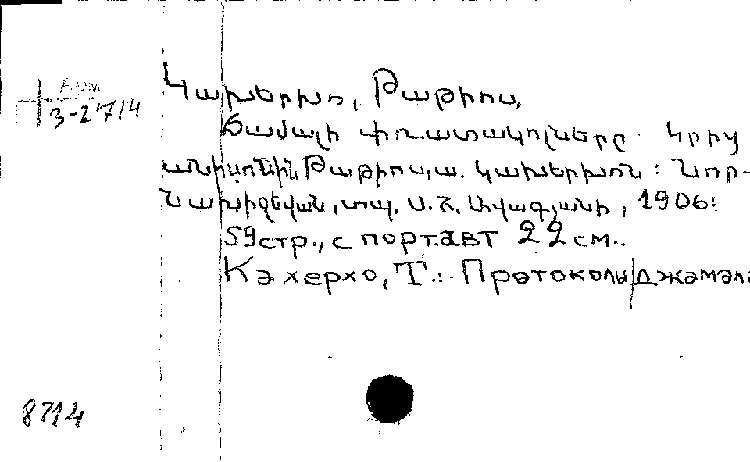 Арм
3-2714
Կախերխո, Թադիոս,
Ճամալի փռատակոլները. Կրից
Թադիոս,ա. Կախերխոն: Նոր-
Նախիջեվան, տպ. Ս. Հ. Ավագյանի, 1906:
59 стр., с порт. авт 22 см.
Кахерхо, Т.: Протоколы Джамала
8714